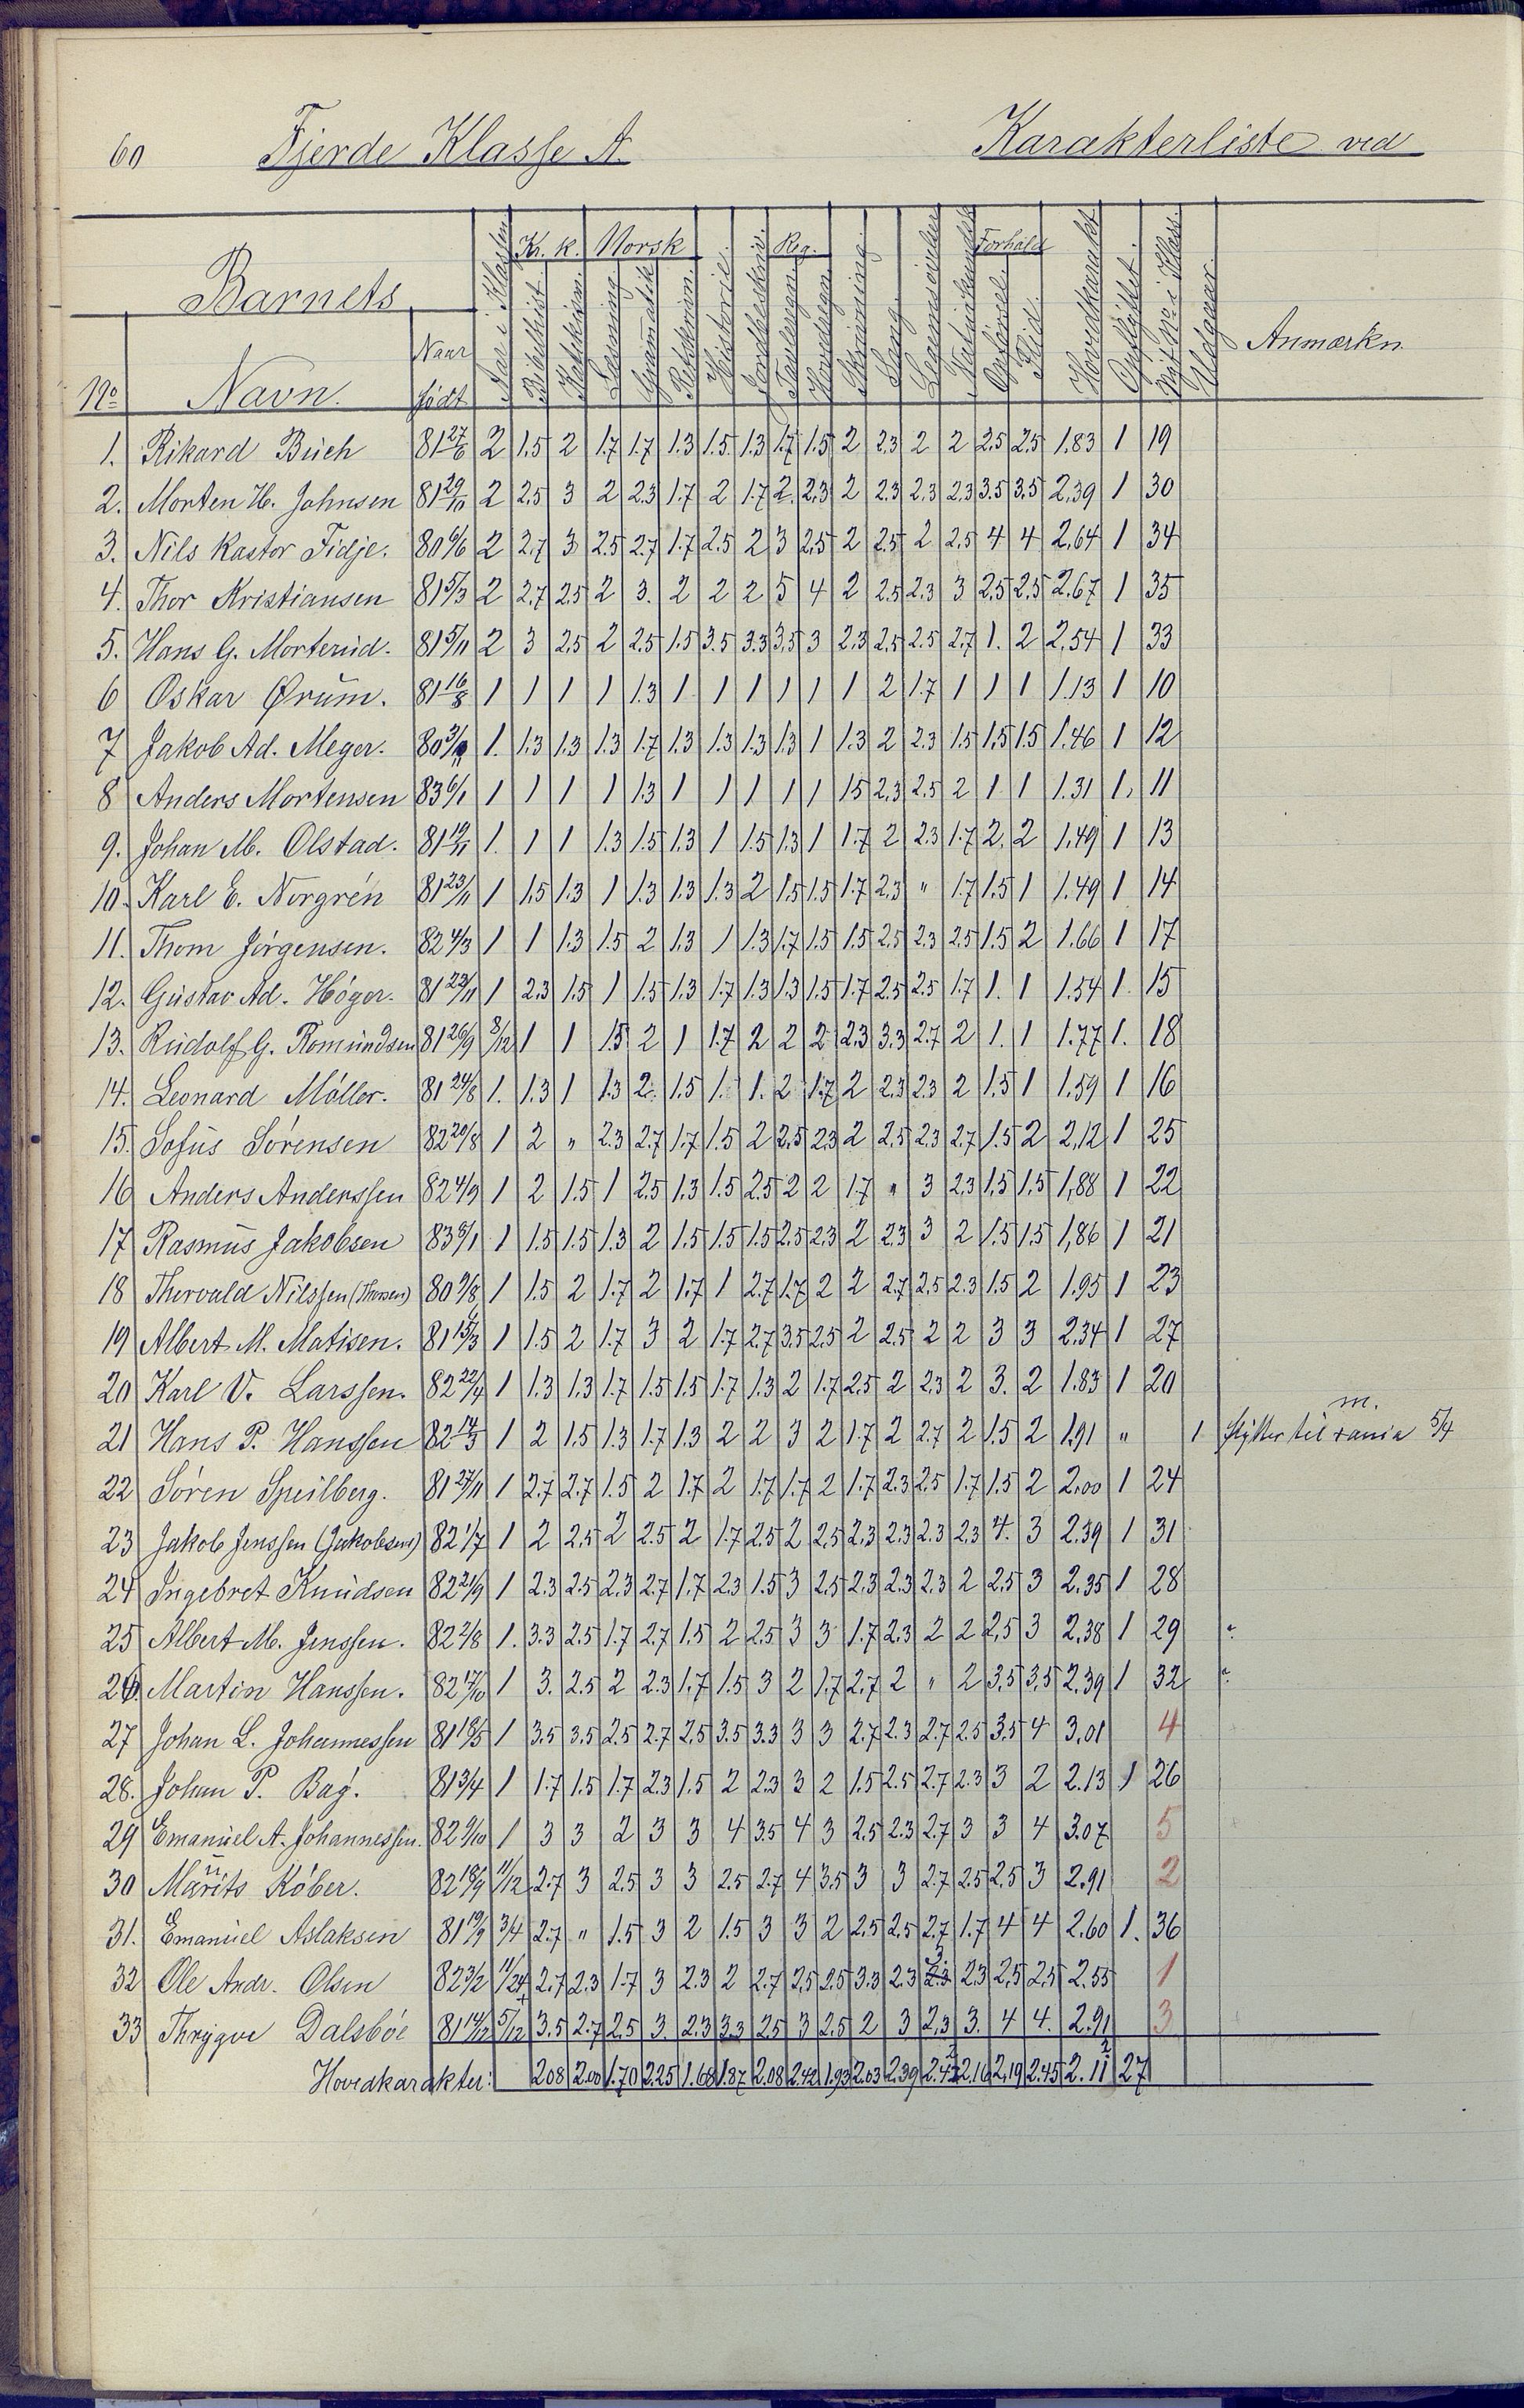 60 Fjerde Klasse A. Karakterliste ved
Barnets
Kr. k. Norsk Reg. Forhold
No Navn. Naar født Aar i Klassen Bibelhist. Katekism. Læsning Gramatik Retskrivn. Historie. Jordbeskriv. Tavleregn. Hovedregn. Skrivning Sang. Legemsøvelser Naturkundsk. Opførsel. Flid. Hovedkarakt. Opflyttet. Nyt Nr i Klass. Udgaar. Anmærkn.
1. Rikard Buch 81 27/6 2 1.5 2 1.7 1.7 1.3 1.5 1.3 1.7 1.5 2 2.3 2 2 2.5 2.5 1.83 1 19
2. Morten H. Johnsen 81 29/10 2 2.5 3 2 2.3 1.7 2 1.7 2 2.3 2 2.3 2.3 2.3 3.5 3.5 2.39 1 30
3. Nils Kastor Fidje. 80 6/6 2 2.7 3 2.5 2.7 1.7 2.5 2 3 2.5 2 2.5 2 2.5 4 4 2.64 1 34
4. Thor Kristiansen 81 5/3 2 2.7 2.5 2 3. 2 2 2 5 4 2 2.5 2.3 3 2.5 2.5 2.67 1 35
5. Hans G. Morterud. 81 5/11 2 3 2.5 2 2.5 1.5 3.5 3.3 3.5 3 2.3 2.5 2.5 2.7 1. 2 2.54 1 33
6 Oskar Ørum. 81 16/8 1 1 1 1 1.3 1 1 1 1 1 1 2 1.7 1 1 1 1.13 1 10
7 Jakob Ad. Meger. 80 1. 1.3 1.3 1.3 1.7 1.3 1.3 1.3 1.3 1 1.3 2 2.3 1.5 1.5 1.5 1.46 1 12
8 Anders Mortensen 83 6/1 1 1 1 1 1.3 1 1 1 1 1 1.5 2.3 2.5 2 1 1 1.31 1. 11
9. Johan M. Olstad. 81 19/11 1. 1 1 1.3 1.5 1.3 1 1.5 1.3 1 1.7 2 2.3 1.7 2. 2 1.49 1 13
10. Karl E. Norgrén 81 23/11 1 1.5 1.3 1 1.3 1.3 1.3 2 1.5 1.5 1.7 2.3 " 1.7 1.5 1 1.49 1 14
11. Thom Jørgensen. 82 4/3 1 1 1.3 1.5 2 1.3 1 1.3 1.7 1.5 1.5 2.5 2.3 2.5 1.5 2 1.66 1 17
12. Gustav Ad. Høger. 81 23/11 1 2.3 1.5 1 1.5 1.3 1.7 1.3 1.3 1.5 1.7 2.5 2.5 1.7 1. 1 1.54 1. 15
13. Rudolf G. Romundsen 81 26/9 8/12 1 1 1.5 2 1 1.7 2 2 2 2.3 3.3 2.7 2 1. 1 1.77 1. 18
14. Leonard Møller. 81 24/8 1. 1.3 1 1.3 2. 1.5 1. 1. 2 1.7 2 2.3 2.3 2 1.5 1 1.59 1 16
15. Sofus Sørensen 82 20/8 1 2 " 2.3 2.7 1.7 1.5 2 2.5 2.3 2 2.5 2.3 2.7 1.5 2 2,12 1 25
16 Anders Anderssen 82 4/9 1 2 1.5 1 2.5 1.3 1.5 2.5 2 2 1.7 " 3 2.3 1.5 1.5 1,88 1 22
17 Rasmus Jakobsen 83 6/1 1 1.5 1.5 1.3 2 1.5 1.5 1.5 2.5 2.3 2 2.3 3 2 1.5 1.5 1,86 1 21
18 Thorvald Nilssen (Thorsen) 80 9/8 1 1.5 2 1.7 2 1.7 1 2.7 1.7 2 2 2.7 2.5 2.3 1.5 2 1.95 1 23
19 Albert M. Matisen. 81 15/3 1 1.5 2 1.7 3 2 1.7 2.7 3.5 2.5 2 2.5 2 2 3 3 2.34 1 27
20 Karl V. Larssen. 82 22/4 1 1.3 1.3 1.7 1.5 1.5 1.7 1.3 2 1.7 2.5 2 2.3 2 3. 2 1.83 1 20
21 Hans P. Hanssen 82 14/3 1 2 1.5 1.3 1.7 1.3 2 2 3 2 1.7 2 2.7 2 1.5 2 1.91 " 1 flytter til xania m. 5/4
22 Søren Speilberg. 81 27/11 1 2.7 2.7 1.5 2 1.7 2 1.7 1.7 2 1.7 2.3 2.5 1.7 1.5 2 2.00 1 24
23 Jakob Jenssen (Jakobsen) 82 1/7 1 2 2.5 2 2.5 2 1.7 2.5 2 2.5 2.3 2.3 2.3 2.3 4. 3 2.39 1 31
24 Ingebret Knudsen 82 21/9 1 2.3 2.5 2.3 2.7 1.7 2.3 1.5 3 2.5 2.3 2.3 2.3 2 2.5 3 2.35 1 28
25 Albert M. Jenssen. 82 2/8 1. 3.3 2.5 1.7 2.7 1.5 2 2.5 3 3 1.7 2.3 2 2 2.5 3 2.38 1 29
26. Martin Hanssen. 82 17/10 1 3. 2.5 2 2.3 1.7 1.5 3 2 1.7 2.7 2 " 2 3.5 3.5 2.39 1 32
27 Johan L. Johannessen 81 18/5 1 3.5 3.5 2.5 2.7 2.5 3.5 3.3 3 3 2.7 2.3 2.7 2.5 3.5 4 3,01 4
28. Johan P. Bag. 81 3/4 1 1.7 1.5 1.7 2.3 1.5 2 2.3 3 2 1.5 2.5 2.7 2.3 3 2 2.13 1 26
29 Emanuel A. Johannessen. 82 9/10 1 3 3 2 3 3 4 3.5 4 3 2.5 2.3 2.7 3 3 4 3.07 5
30 Mauritz Køber. 82 18/9 11/12 2.7 3 2.5 3 3 2.5 2.7 4 3.5 3 3 2.7 2.5 2.5 3 2.91 2
31. Emanuel Aslaksen 81 19/9 3/4 2.7 " 1.5 3 2 1.5 3 3 2 2.5 2.5 2.7 1.7 4 4 2.60 1. 36
32 Ole Andr. Olsen 82 3/2 11/24 2.7 2.3 1.7 3 2.3 2 2.7 2.5 2.5 3.3 2.3 3 2.3 2.5 2.5 2.55 1
33 Thrygve Dalsbøe 81 14/12 5/12 3.5 2.7 2.5 3. 2.3 3.3 2.5 3 2.5 2 3 2.3 3. 4 4. 2.91 3
Hovedkarakter: 2.08 2.00 1.70 2.25 1.68 1.87 2.08 2.42 1.93 2.03 2.39 2.42 2.16 2.19 2.45 2.11 27